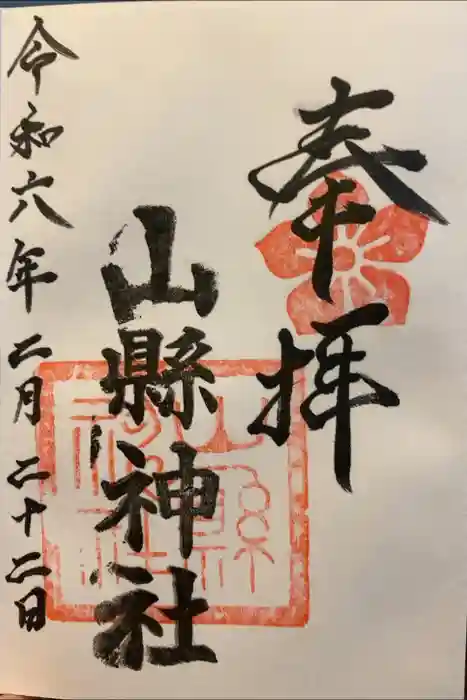 奉拝
山縣神社
令和六年二月二十二日
山縣
神社